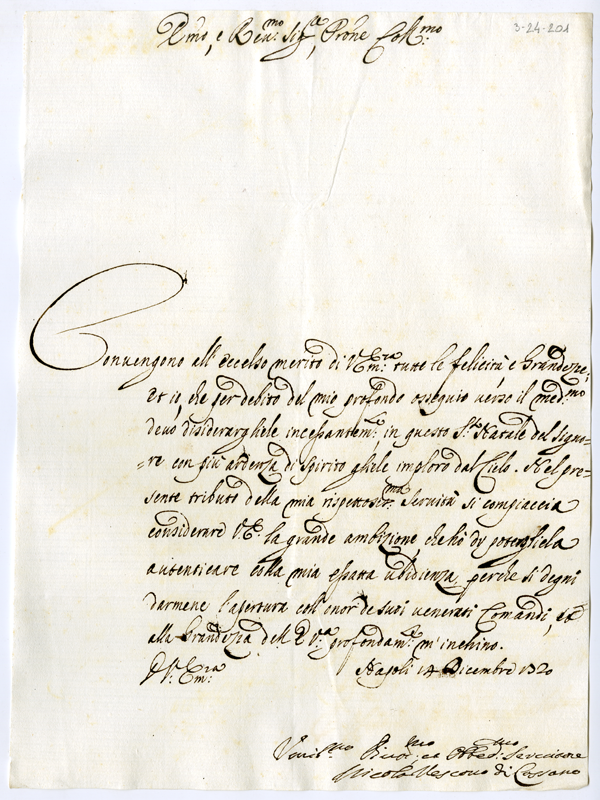 3-24-201
Emo, e Reu:mo Sig:re, Prone Coll:mo
Conuengono all' eccelso merito di V.Em:za tutte le felicità, e Grandezze;
et io, che per debito del mio profondo ossequio uerso il med:mo
deuo disiderargliele incessantem:te in questo S.to Natale del Signo=
=re con più ardenza di spirito gliele imploro dal Cielo. Nel pre=
sente tributo della mia rispettosis:ma Seruitù si compiaccia
considerare V.E. la grande ambizione, che hò di potergliela
autenticare colla mia esatta ubidienza, perche si degni
darmene l'apertura coll' onor de suoi uenerati Comandi, et
alla Grandezza dell' E.V.a profondam:te m' inchino.
D V. Em:za Napoli 14 Dicembre 1720
Vmilis:mo Diuot:mo et Obbed:mo Seruidore
Nicolò Vescouo di